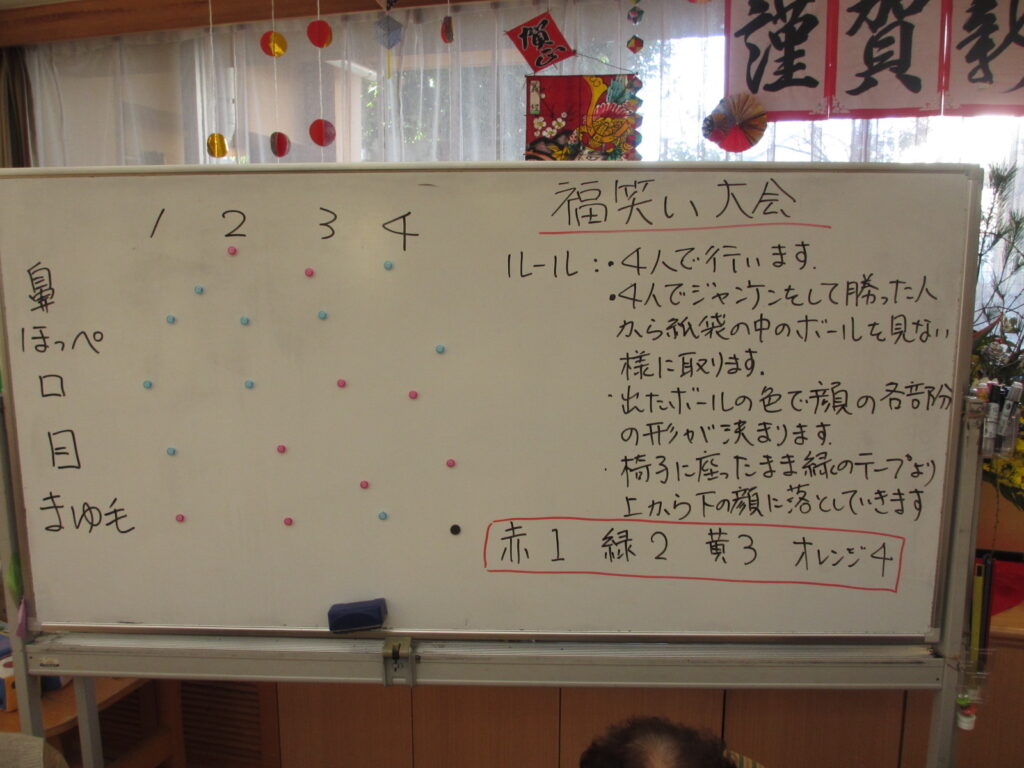 賀正
謹賀新
福笑い大会
1 2 3 4
鼻
ほっぺ
口
目
まゆ毛
ルール:・4人で行います.
・4人でジャンケンをして勝った人
から紙袋の中のボールを見ない
様に取ります.
・出たボールの色で顔の各部分
の形が決まります.
・椅子に座ったまま緑のテープより
上から下の顔に落としていきます
赤1 緑2 黄3 オレンジ4